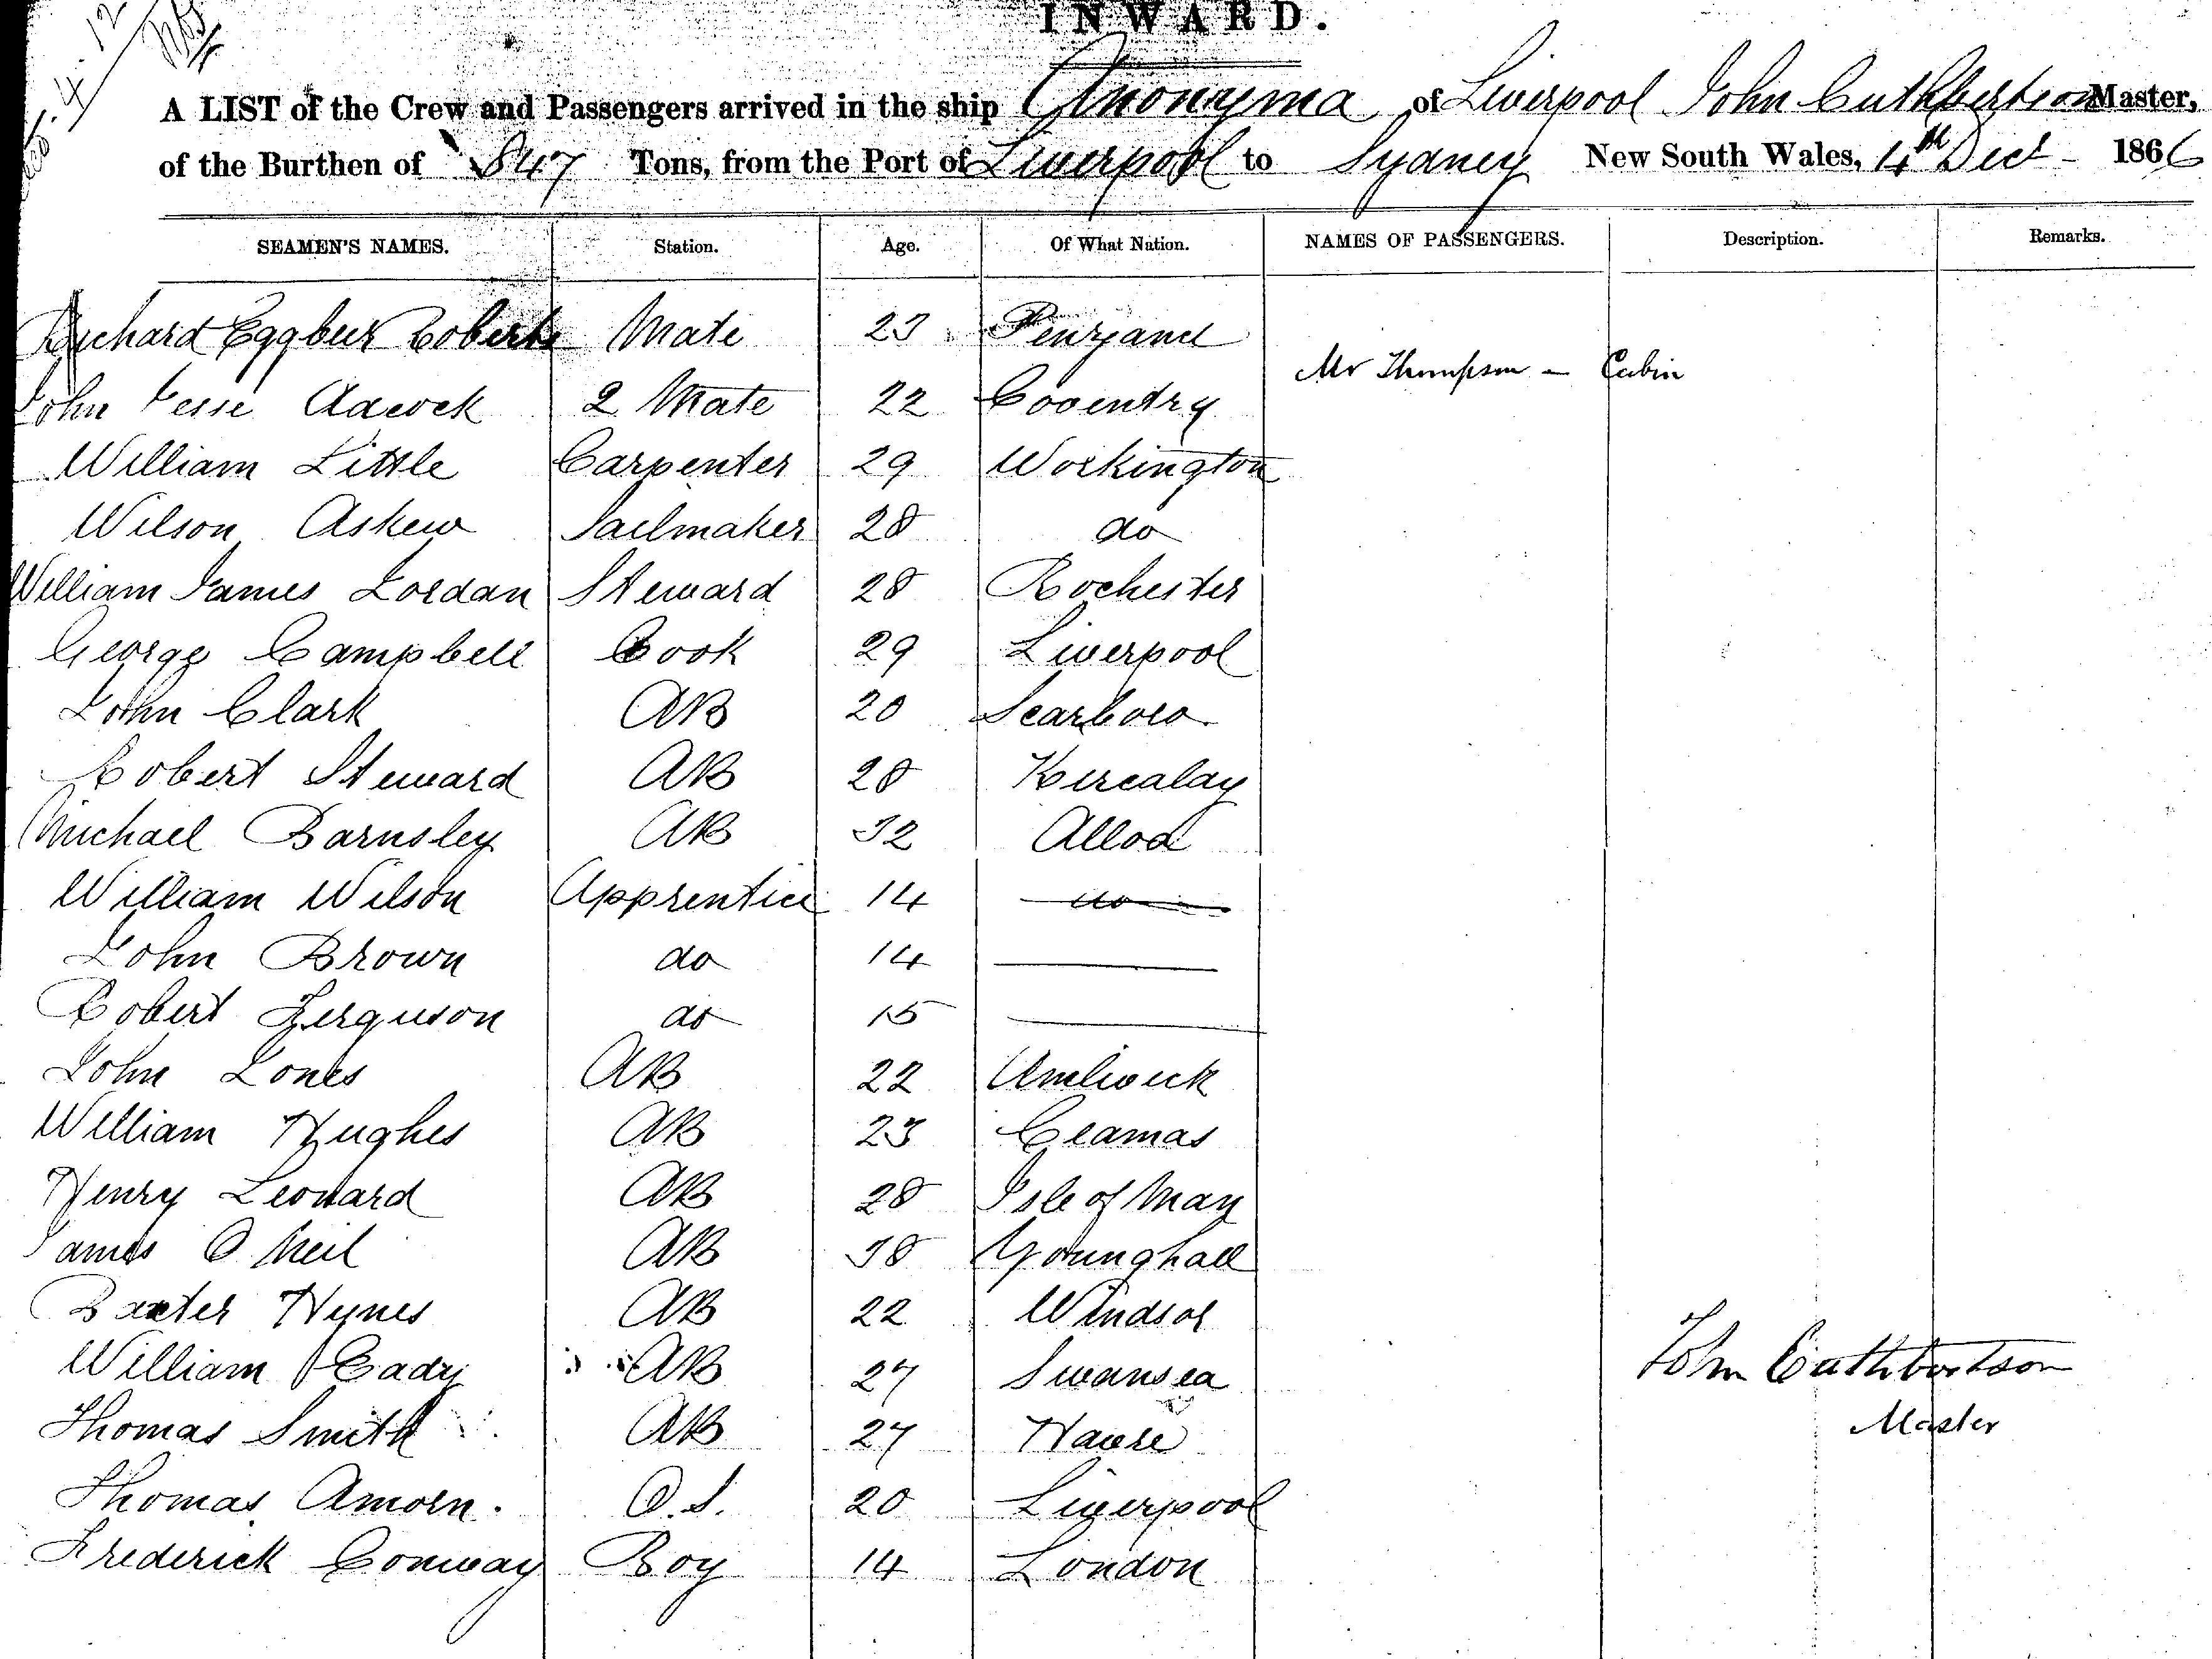 INWARD.
A LIST of the Crew and Passengers arrived in the ship Anonyma of Liverpool John Cuthbertson Master,
of the Burthen of 847 Tons, from the Port of Liverpool to Sydney New South Wales, 4th Dect 1866
SEAMEN'S NAMES. Station. Age. Of What Nation. NAMES OF PASSENGERS. Description. Remarks.
Richard Roberts Mate 23 Penzance
Mr Thompson - Cabin
John Jesse Adcock 2 Mate 22 Coventry
William Little Carpenter 29 Workington
Wilson Askew Sailmaker 28 do
William James Jordan Steward 28 Rochester
George Campbell Cook 29 Liverpool
John Clark AB 20 Scarboro
Robert Steward AB 28 Kircalay
Michael Barnsley AB 32 Alloa
William Wilson Apprentice 14 do
John Brown do 14
Robert Ferguson do 15
John Jones AB 22 Amlwick
William Hughes AB 23 Ceamas
Henry Leonard AB 28 Isle of Man
James O Neil AB 38 Younghall
Baxter Hynes AB 22 Windsor
William Eady AB 27 Swansea
John Cuthbertson
Thomas Smith AB 27 Havre
Master
Thomas Amorn. O.S. 20 Liverpool
Frederick Conway Boy 14 London